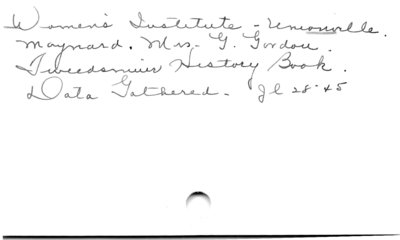 Women's Institute - Unionville.
Maynard. Mrs. G. Gordon.
Tweedsmuir History Book.
Data Gathered. Jl 28·45